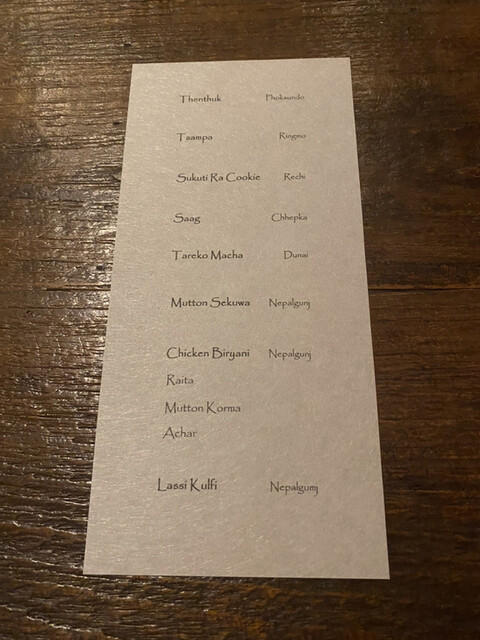 Thenthuk Phoksundo
Tsampa Ringmo
Sukuti Ra Cookie Rechi
Saag Chhepka
Tareko Macha Dunai
Mutton Sekuwa Nepalgunj
Chicken Biryani Nepalgunj
Raita
Mutton Korma
Achar
Lassi Kulfi Nepalgunj